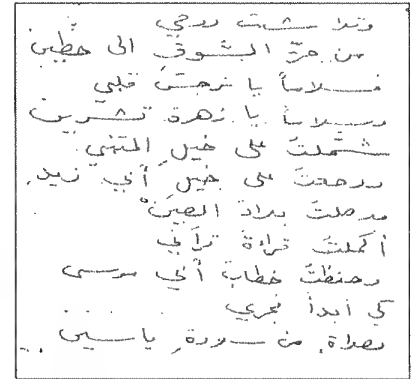 وتلاشت روحي
من حرّ الشوق الى خطين
فسلاماً يا نرجس قلبي
وسلاماً يا زهرة تشرين
على خيل المتنبي
ورجعت على خيل أبي زيد
وصلت بلاد الصين
أكملت قراءة
وحفظت خطاب أبي موسى
كي أبدأ فجري
بصلاة من سورة ياسين ..